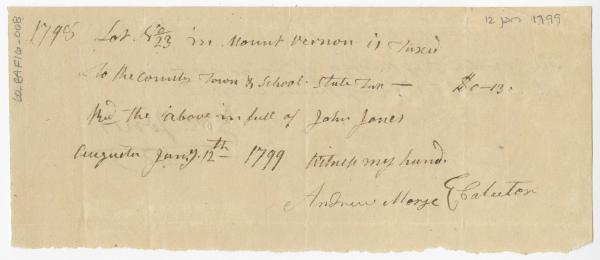 12 Jan 1799
1798 Lot No 23 in Mount Vernon is Taxed
to the County Town & School State Tax — 0-13.
Recd the above in full of John Jones
Augusta Jany. 12th 1799 Witness my hand.
Andrew Morse